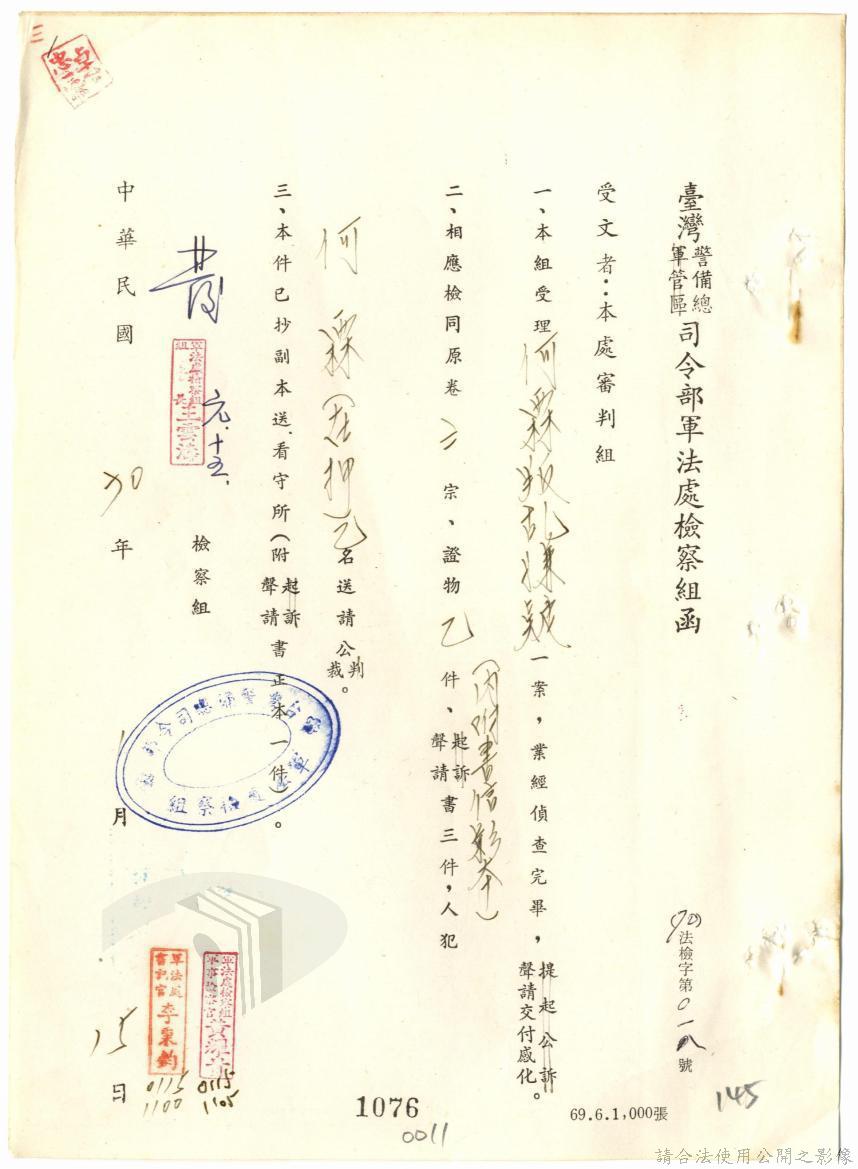 臺灣警備總軍管區司令部軍法處檢察組函
(70)法檢字第〇一八號
受文者：本處審判組
一、本組受理何霖叛亂嫌疑一案，業經偵查完畢，提起公訴聲請交付感化。
二、相應檢同原卷六宗、證物乙件、起訴聲請書三件，人犯
(內附書信影本)
何霖(在押)乙名送請公判裁。
三、本件已抄副本送看守所(附起訴聲請書正本一件)。
檢察組
元.十五.
中華民國70年1月15日
軍法處書記官李秉鈞
0115
1100
0115
1105
1076
0011
69.6.1,000張
145
請合法使用公開之影像